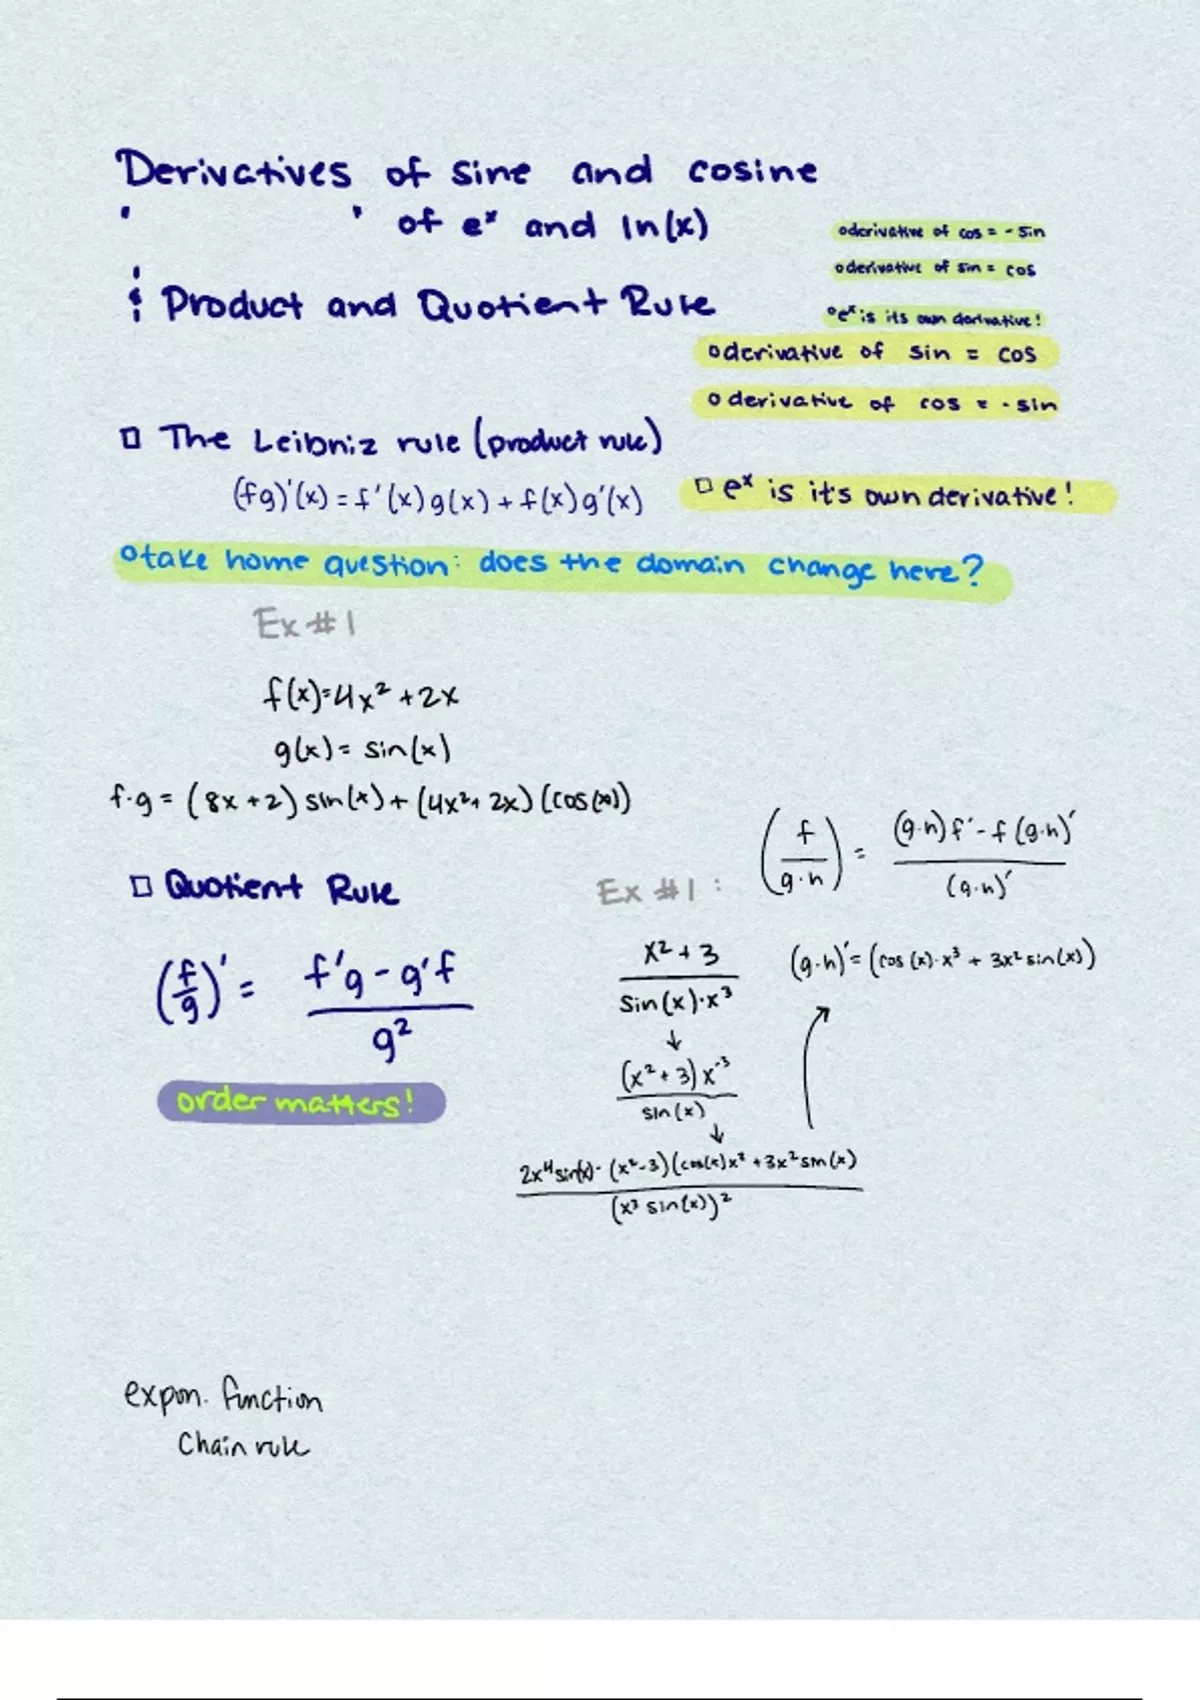 Derivatives of sine and cosine
' ' of eˣ and ln(x)
& Product and Quotient Rule
o derivative of cos = - sin
o derivative of sin = cos
o eˣ is its own derivative!
o derivative of sin = cos
o derivative of cos = - sin
□ The Leibniz rule (product rule)
(fg)'(x) = f'(x)g(x) + f(x)g'(x)
□ eˣ is it's own derivative!
o take home question: does the domain change here?
Ex #1
f(x)=4x²+2x
g(x) = sin(x)
f·g = (8x+2) sin(x) + (4x²+2x)(cos(x))
(f/g·h) = (g·h)f' - f(g·h)' / (g·h)'
□ Quotient Rule
(f/g)' = f'g - g'f / g²
order matters!
Ex #1:
x²+3 / sin(x)·x³
↓
(x²+3)x⁻³ / sin(x)
↓
(g·h)' = (cos(x)·x³ + 3x² sin(x))
2x⁴sin(x) - (x²-3)(cos(x)x³ + 3x² sin(x) / (x³ sin(x))²
expon. function
Chain rule